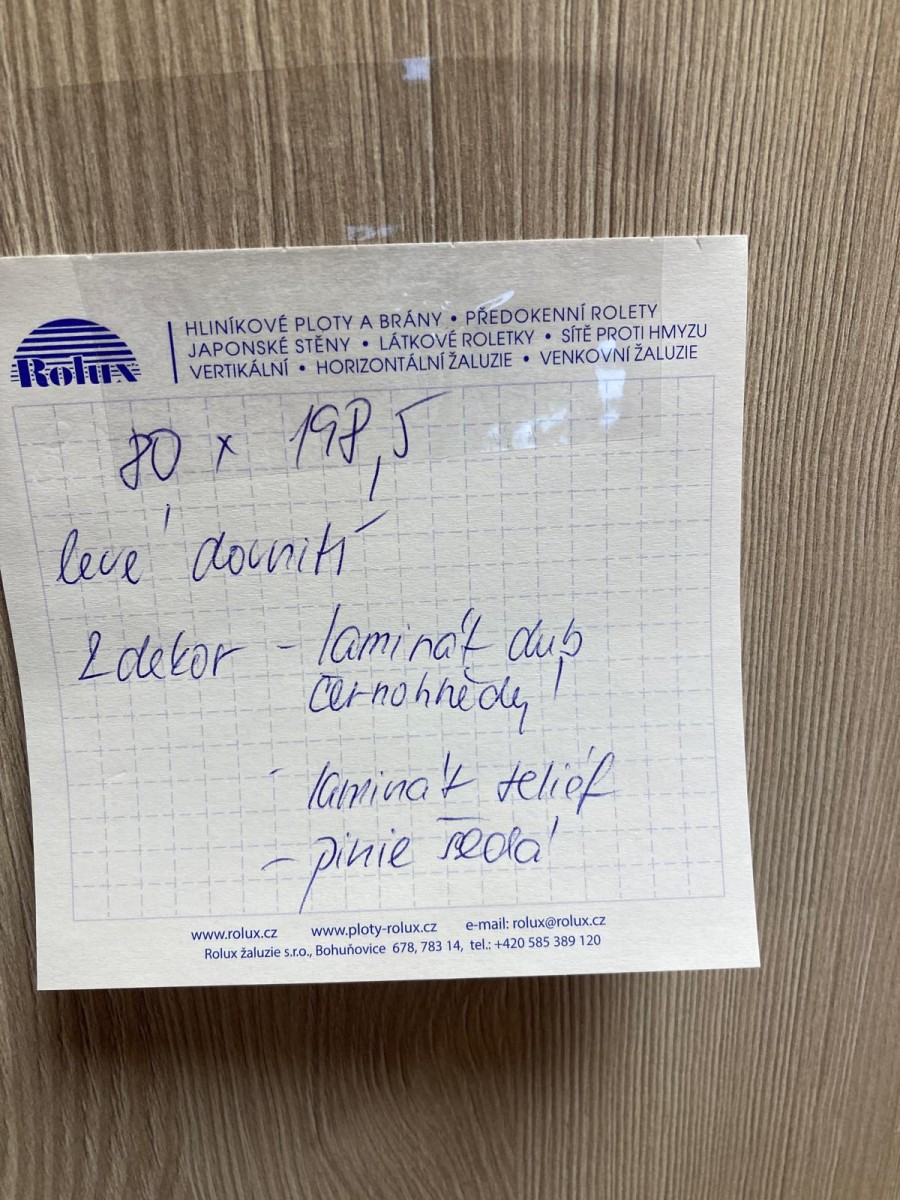 Rolux
HLINÍKOVÉ PLOTY A BRÁNY • PŘEDOKENNÍ ROLETY
JAPONSKÉ STĚNY • LÁTKOVÉ ROLETKY • SÍTĚ PROTI HMYZU
VERTIKÁLNÍ • HORIZONTÁLNÍ ŽALUZIE • VENKOVNÍ ŽALUZIE
80 x 198,5
levé dovnitř
2 dekor - laminát dub
černohnědý
- laminát reliéf
- pinie šedá
www.rolux.cz www.ploty-rolux.cz e-mail: rolux@rolux.cz
Rolux žaluzie s.r.o., Bohuňovice 678, 783 14, tel.: +420 585 389 120